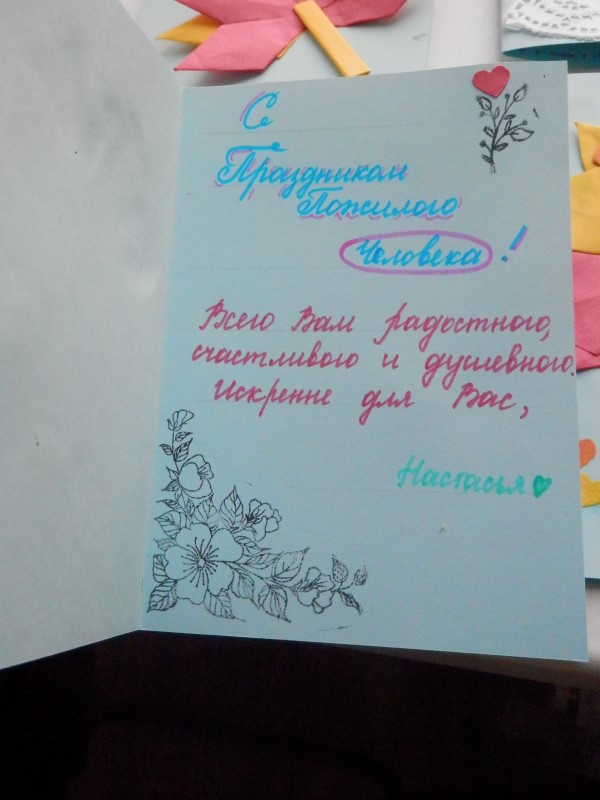 С
Праздником
Пожилого
Человека!
Всего Вам радостного,
счастливого и душевного.
Искренне для Вас,
Настасья